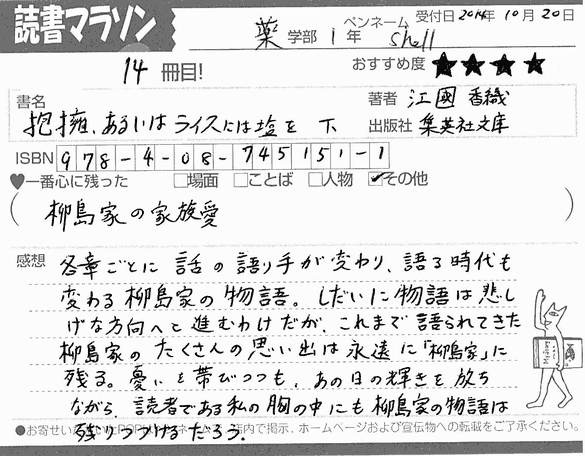 読書マラソン
薬 学部 1 年 ペンネーム shell 受付日 2014年 10月 20日
14 冊目! おすすめ度 ★★★★
書名 抱擁、あるいはライスには塩を 下
著者 江國 香織
出版社 集英社文庫
ISBN 978-4-08-745151-1
♥一番心に残った □場面 □ことば □人物 ☑その他
( 柳島家の家族愛 )
感想 各章ごとに 話の語り手が変わり、語る時代も
変わる柳島家の物語。しだいに物語は悲し
げな方向へと進むわけだが、これまで語られてきた
柳島家の たくさんの思い出は永遠に「柳島家」に
残る。憂いを帯びつつも、あの日の輝きを放ち
ながら、読者である私の胸の中にも柳島家の物語は
残りつづけるだろう。
●お寄せいただいたPOPは 内で掲示、ホームページおよび宣伝物への転載をご了承ください。